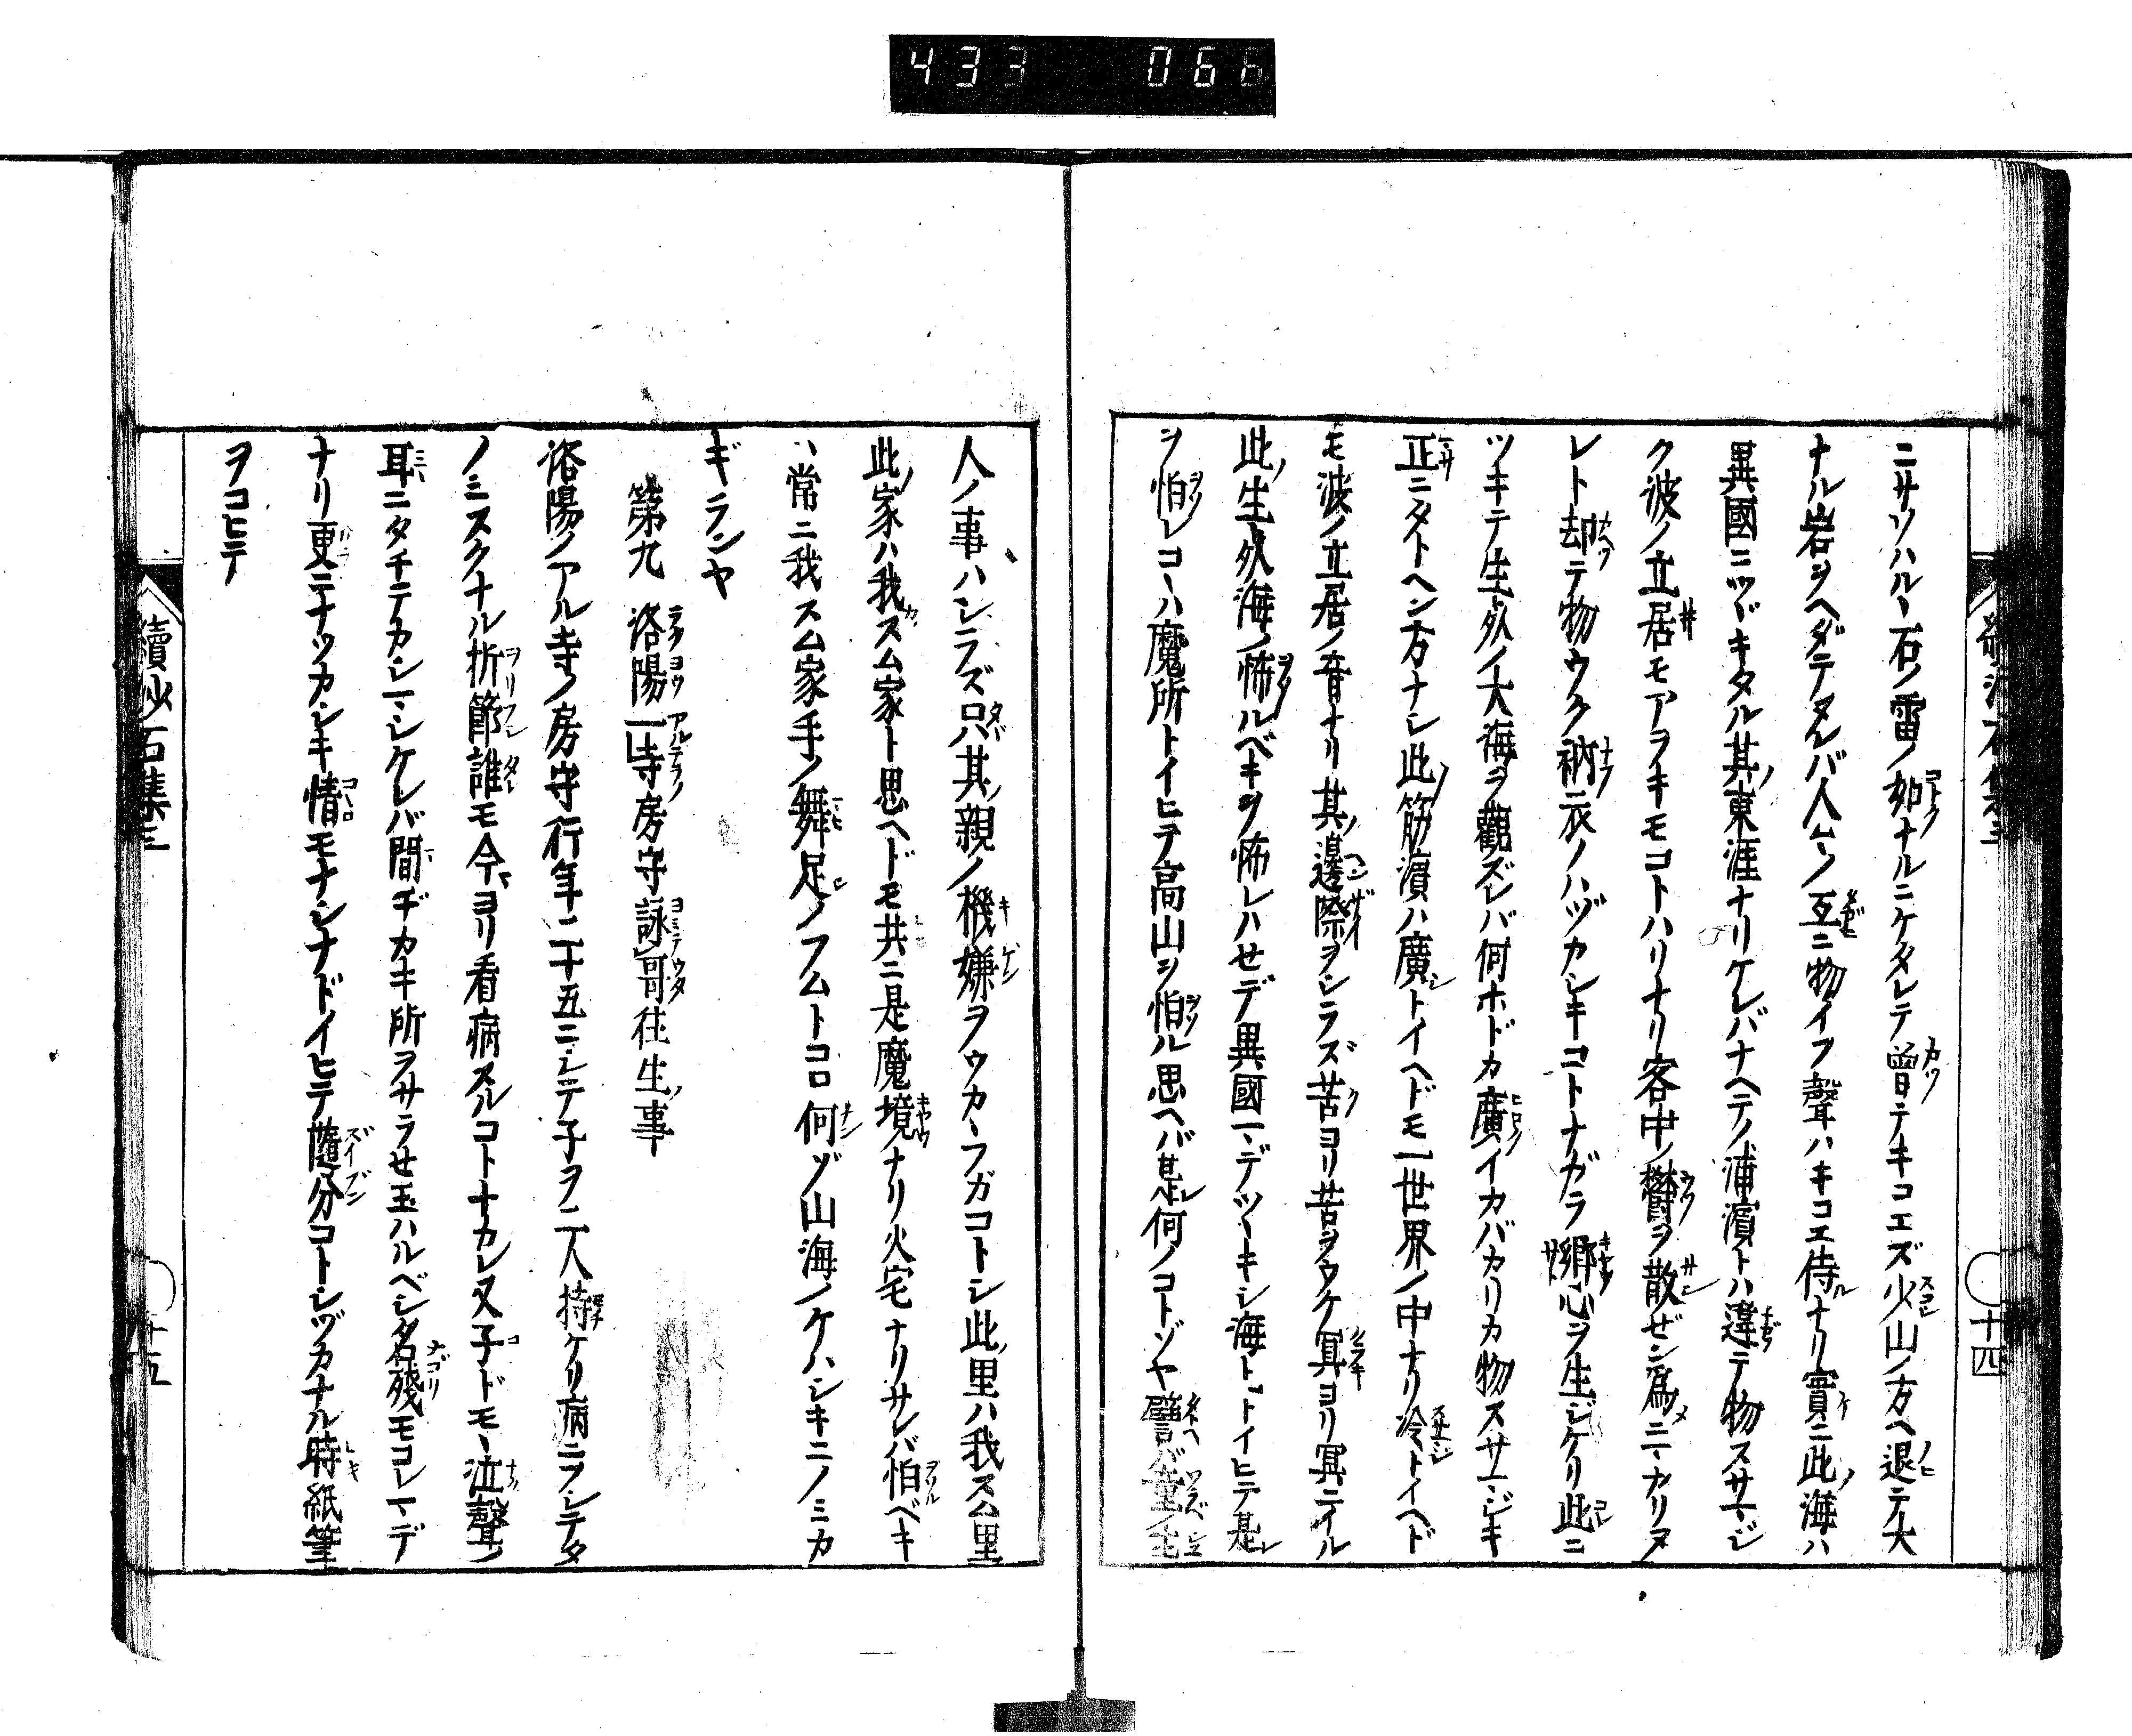 433 066
ニサソハルヽ石ノ雷ノ如ナルニケタレテ曾テキコエズ少山ノ方ヘ退テ大
ナル岩ヲヘダテタレバ人々ノ互ニ物イフ聲ハキコエ侍ナリ實ニ此海ハ
異國ニツヾキタル其ノ東涯ナリケレバナヘテノ浦濱トハ違テ物スサマジ
ク波ノ立居モアラキモコトハリナリ客中ノ欝ヲ散ゼン爲ニマカリヌ
レト却テ物ウク衲衣ノハヅカシキコトナガラ郷心ヲ生ジケリ此ニ
ツキテ生死ノ大海ヲ觀ズレバ何ホドカ廣イカバカリカ物スサマジキ
正ニタトヘン方ナシ此ノ筋濱ハ廣シトイヘドモ一世界ノ中ナリ冷トイヘド
モ波ノ立居ノ音ナリ其ノ邊際ヲシラズ苦ヨリ苦ヲウケ冥ヨリ冥ニイル
此ノ生死海ノ怖ルベキヲ怖レハセデ異國マデツヾキシ海トヽイヒテ是
ヲ怕レコヽハ魔所トイヒテ高山ヲ怕ル思ヘバ是レ何ノコトゾヤ譬バ童ノ
續沙石集三
十四
人ノ事ハシラズ只其ノ親ノ機嫌ヲウカヽフガコトシ此ノ里ハ我スム里
此ノ家ハ我スム家ト思ヘドモ共ニ是魔境ナリ火宅ナリサレバ怕ベキ
ハ常ニ我スム家手ノ舞足ノフムトコロ何ゾ山海ノケハシキニノミカ
ギランヤ
第九 洛陽一寺房守詠哥往生ノ事
洛陽ノアル寺ノ房守行年二十五ニシテ子ヲ二人持ケリ病ニフシテタ
ノミスクナル折節誰モ今ヨリ看病スルコトナカレ又子ドモヽ泣聲ノ
耳ニタチテカシマシケレバ間ヂカキ所ヲサラセ玉ハルベシ名殘モコレマデ
ナリ更ニナツカシキ情モナシナドイヒテ隨分コトシヅカナル時紙筆
ヲコヒテ
續沙石集三
十五